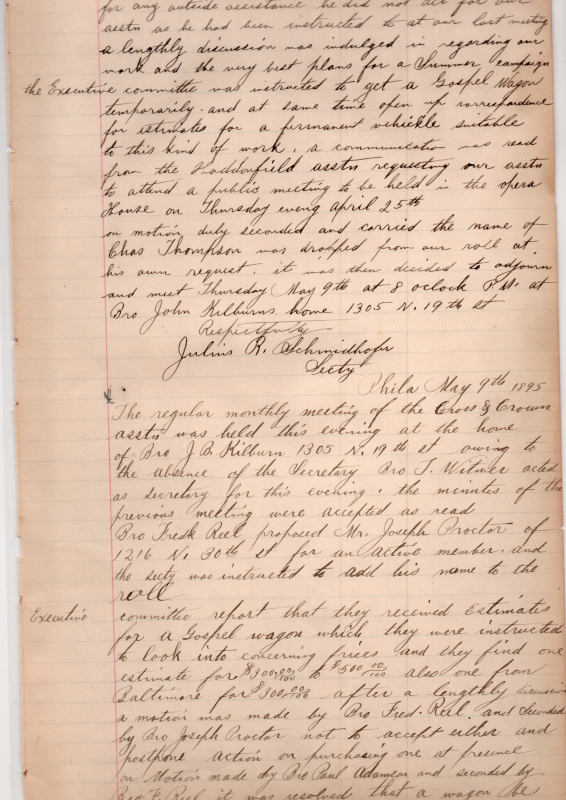 for any outside assistance he did not act for our
asstn as he had been instructed to at our last meeting
a lengthly discussion was indulged in regarding our
work and the very best plans for a Summer campaign
the Executive committee was instructed to get a Gospel Wagon
temporarily. and at same time open up correspondence
for estimates for a firmanent vehickle suitable
to this kind of work. a communication was read
from the Haddonfield asstn requesting our asstn
to attend a public meeting to be held in the opera
House on Thursday eveng April 25th
on motion duly seconded and carried the name of
Chas Thompson was dropped from our roll at
his own request. it was then decided to adjourn
and meet Thursday May 9th at 8 oclock P.M. at
Bro John Kilburns home 1305 N. 19th st
Respectfully
Julius R. Schmidhofr
Secty
Phila May 9th 1895
The regular monthly meeting of the Cross & Crown
asstn was held this evening at the home
of Bro J. B. Kilburn 1305 N. 19th st owing to
the absence of the Secretary Bro T. acted
as secretary for this evening. the minutes of the
previous meeting were accepted as read
Bro Fredk Reel proposed Mr. Joseph Proctor of
1216 N. 30th st for an active member. and
the secty was instructed to add his name to the
roll
Executive committee report that they received Estimates
for a Gospel wagon which they were instructed
to look into concerning prices and they find one
estimate for $300 00/100 to $500 00/100 also one from
Baltimore for $300 00/100 after a lengthly discussion
a motion was made by Bro Fred. Reel. and Seconded
by Bro Joseph Proctor not to accept either and
postpone action on purchasing one at presence
on Motion made by Bro Paul Adamson and seconded by
Bro F. Reel it was resolved that a wagon be